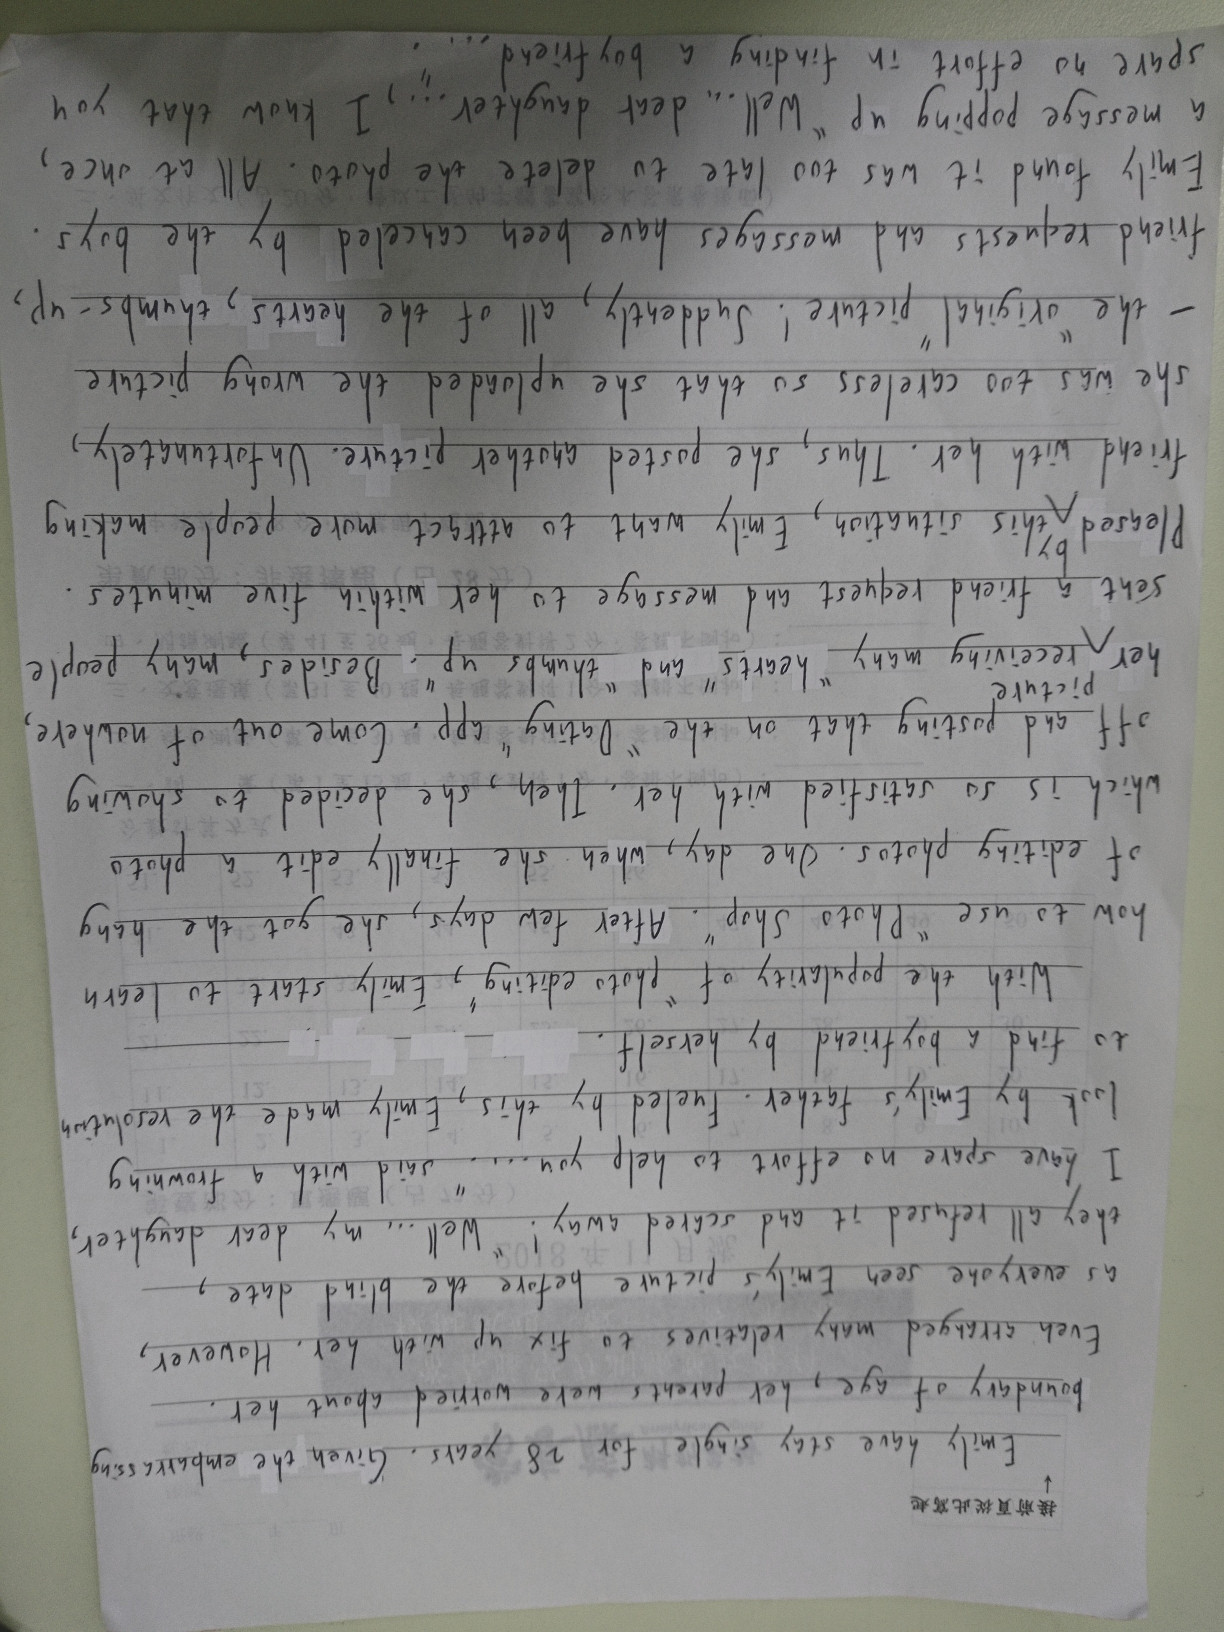 接前頁從此寫起
↓
Emily have stay single for 28 years. Given the embarrassing
boundary of age, her parents were worried about her.
Even arranged many relatives to fix up with her. However,
as everyone seen Emily's picture before the blind date,
they all refused it and scared away! "Well... my dear daughter,
I have spare no effort to help you...." said with a frowning
look by Emily's father. Fueled by this, Emily made the resolution
to find a boyfriend by herself.
With the popularity of "photo editing", Emily start to learn
how to use "Photo Shop". After few days, she got the hang
of editing photos. One day, when she finally edit a photo
which is so satisfied with her. Then, she decided to showing
off and posting that on the "Dating" app. Come out of nowhere,
her picture receiving many "hearts" and "thumbs up". Besides, many people
sent a friend request and message to her within five minutes.
Pleased by this situation, Emily want to attract more people making
friend with her. Thus, she posted another picture. Unfortunately,
she was too careless so that she uploaded the wrong picture
— the "original" picture! Suddently, all of the hearts, thumbs-up,
friend requests and messages have been canceled by the boys.
Emily found it was too late to delete the photo. All at once,
a message popping up "Well... dear daughter...", I know that you
spare no effort in finding a boyfriend ....